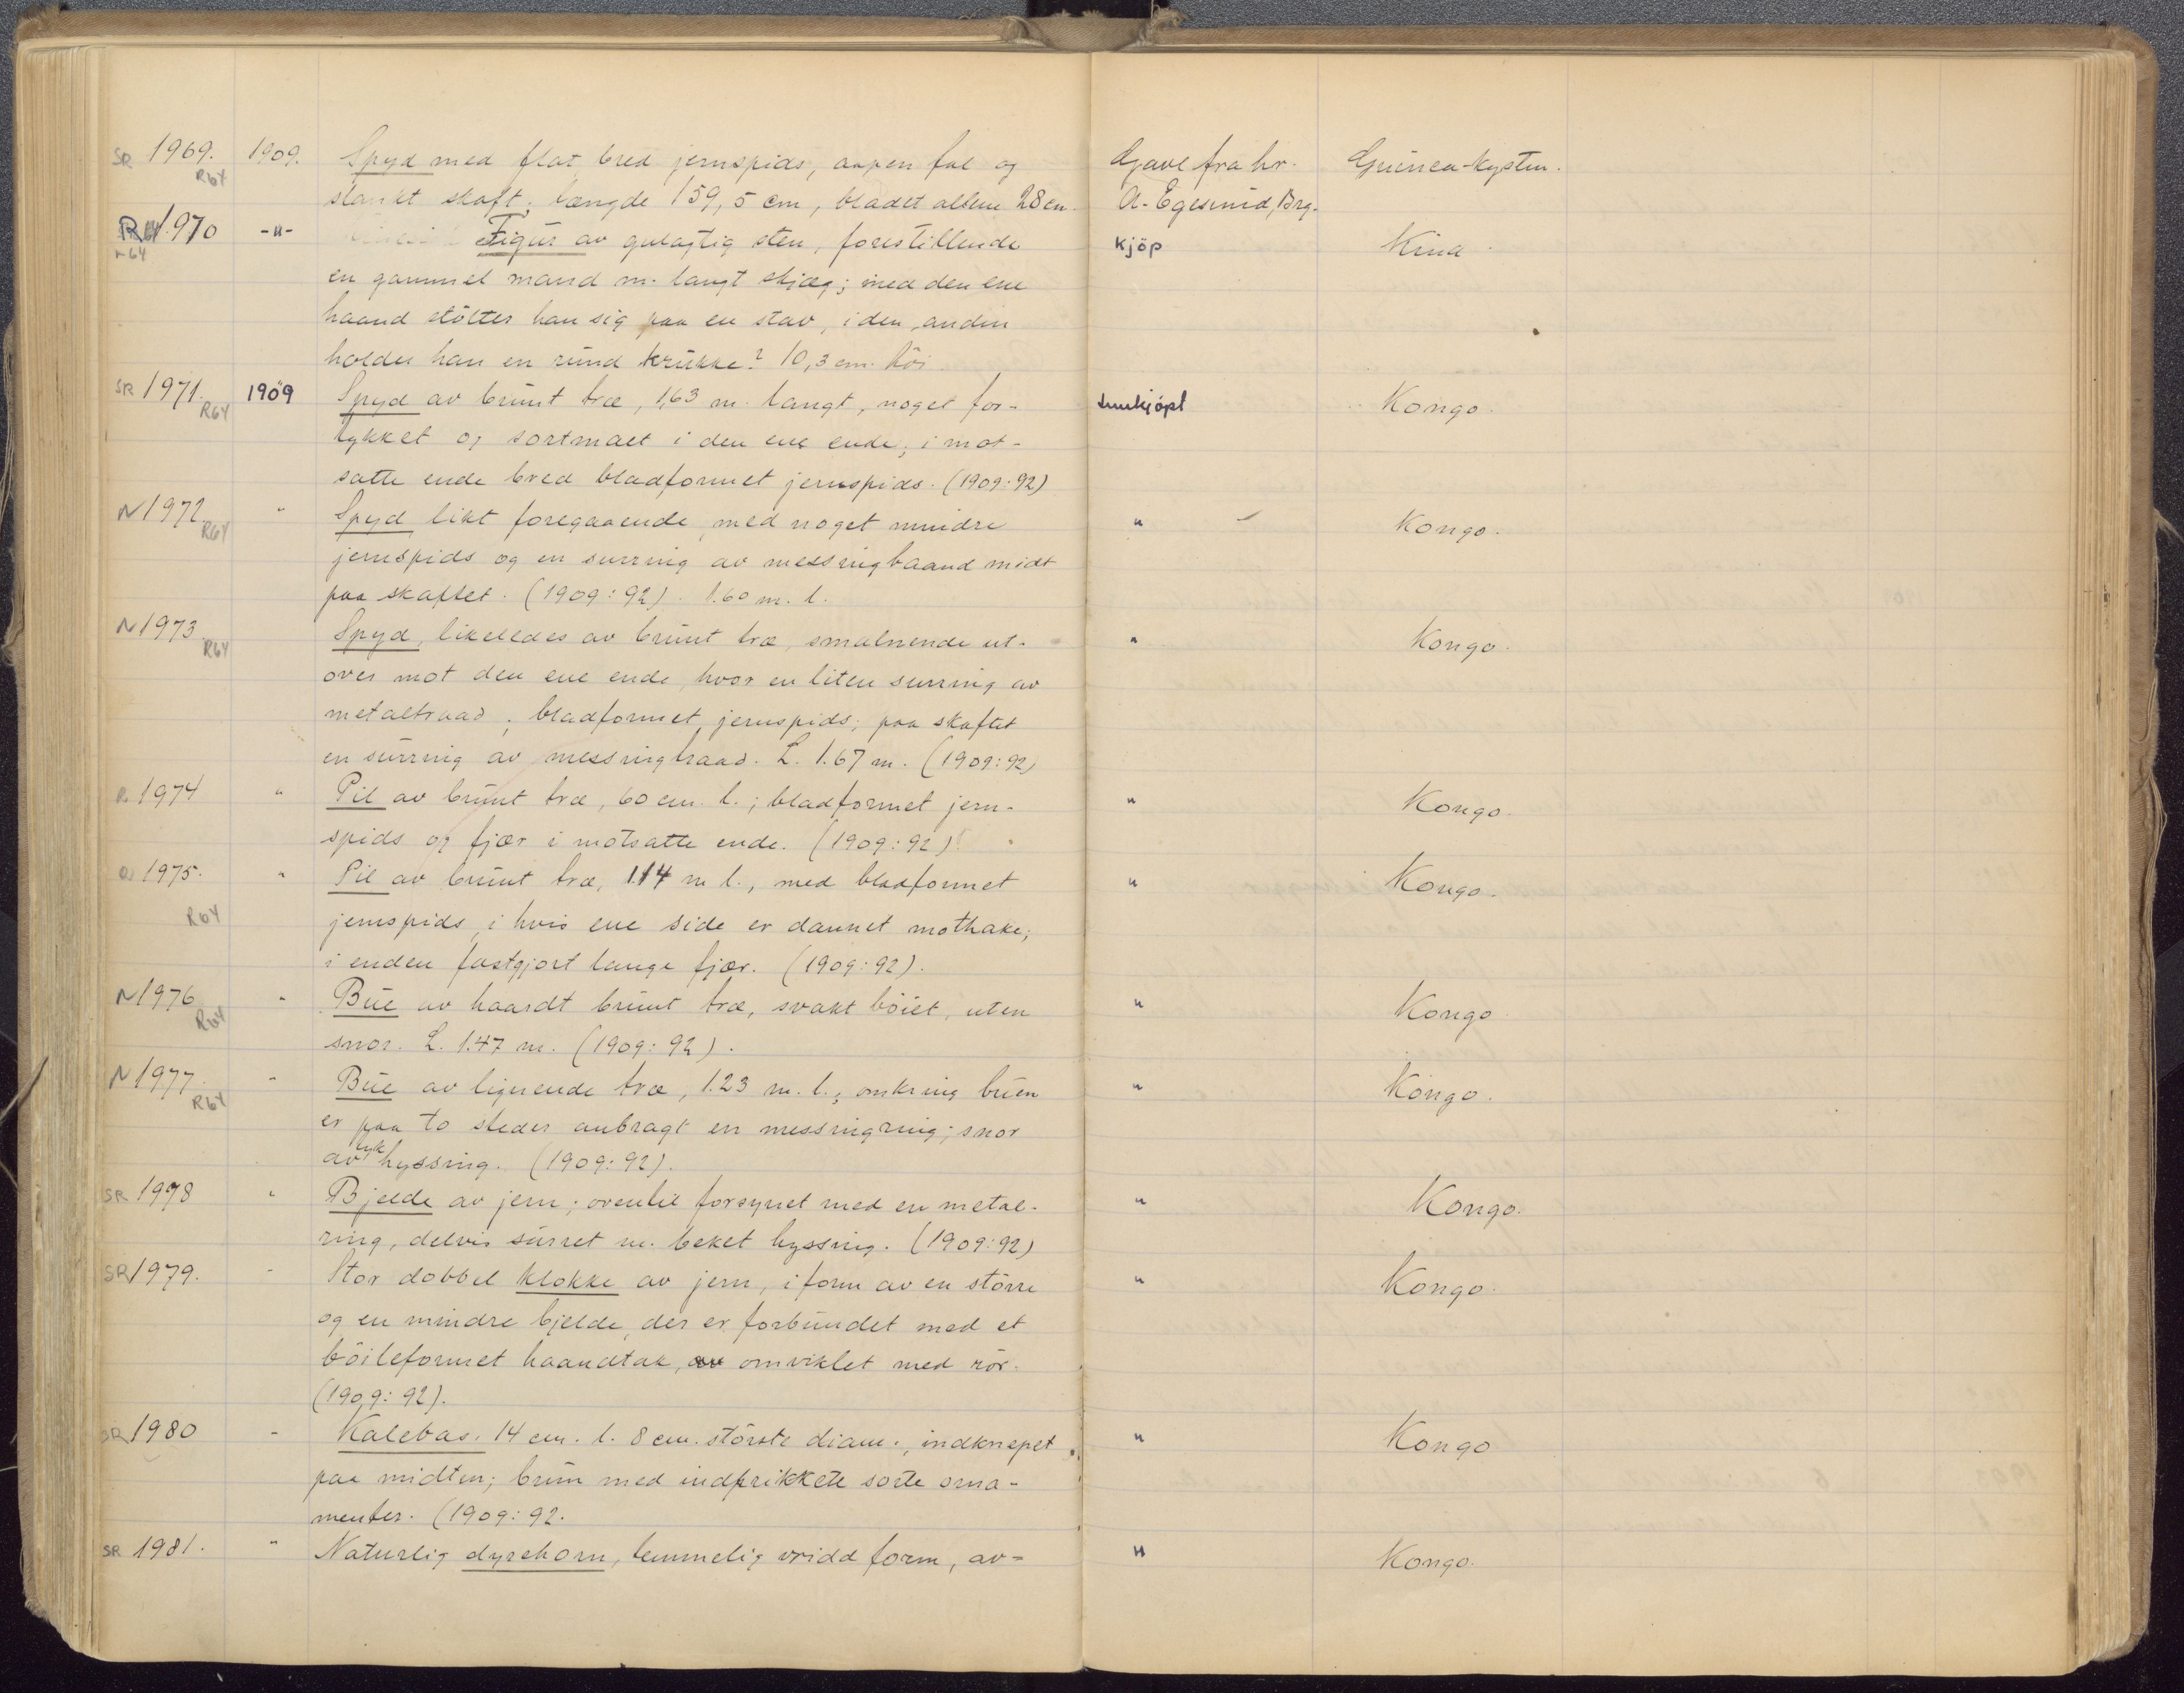 SR 1969. R64 1909. Spyd med flat bred jernspids, aapen fal og Gave fra hr. Guinea-kysten.
slankt skaft; længde 159,5 cm, bladet allene 28 cm. A. Egesund, Brg.
R64 1970 R64 -"- Figur av gulagtig sten, forestillende kjöp Kina.
en gammel mand m. langt skjæg; med den ene
haand stötter han sig paa en stav, i den anden
holder han en rund krukke? 10,3 cm. höi
SR 1971. R64 1909 Spyd av brunt træ, 1,63 m. langt, noget for- innkjöpt Kongo.
tykket og sortmalt i den ene ende; i mot-
satte ende bred bladformet jernspids. (1909:92)
N 1972 R64 " Spyd likt foregaaende, med noget mindre " Kongo.
jernspids og en surring av messingbaand midt
paa skaftet. (1909:92). 1.60 m. l.
N 1973 R64 Spyd, likeledes av brunt træ, smalnende ut- " Kongo.
over mot den ene ende, hvor en liten surring av
metaltraad; bladformet jernspids; paa skaftet
en surring av messingtraad. L. 1.67 m. (1909:92)
1974 " Pil av brunt træ, 60 cm. l.; bladformet jern- " Kongo.
spids og fjær i motsatte ende. (1909:92).
1975. R64 " Pil av brunt træ, 1.14 m l., med bladformet " Kongo.
jernspids, i hvis ene side er dannet mothake;
i enden fastgjort lange fjær. (1909:92).
N 1976 R64 " Bue av haardt brunt træ, svakt böiet, uten " Kongo
snor. L. 1.47 m. (1909:92).
N 1977. R64 " Bue av lignende træ, 1.23 m. l.; omkring buen " Kongo.
er paa to steder anbragt en messingring; snor
av tyk hyssing. (1909:92).
SR 1978 " Bjelde av jern; oventil forsynet med en metal- " Kongo.
ring, delvis surret m. beket hyssing. (1909:92)
SR 1979. " Stor dobbel klokke av jern, i form av en större " Kongo.
og en mindre bjelde, der er forbundet med et
böileformet haandtak, omviklet med rör.
(1909:92).
SR 1980 " Kalebas. 14 cm. l. 8 cm. störste diam., indknepet " Kongo
paa midten; brun med indprikkete sorte orna-
menter. (1909:92.
SR 1981. " Naturlig dyrehorn, temmelig vridd form, av- " Kongo.